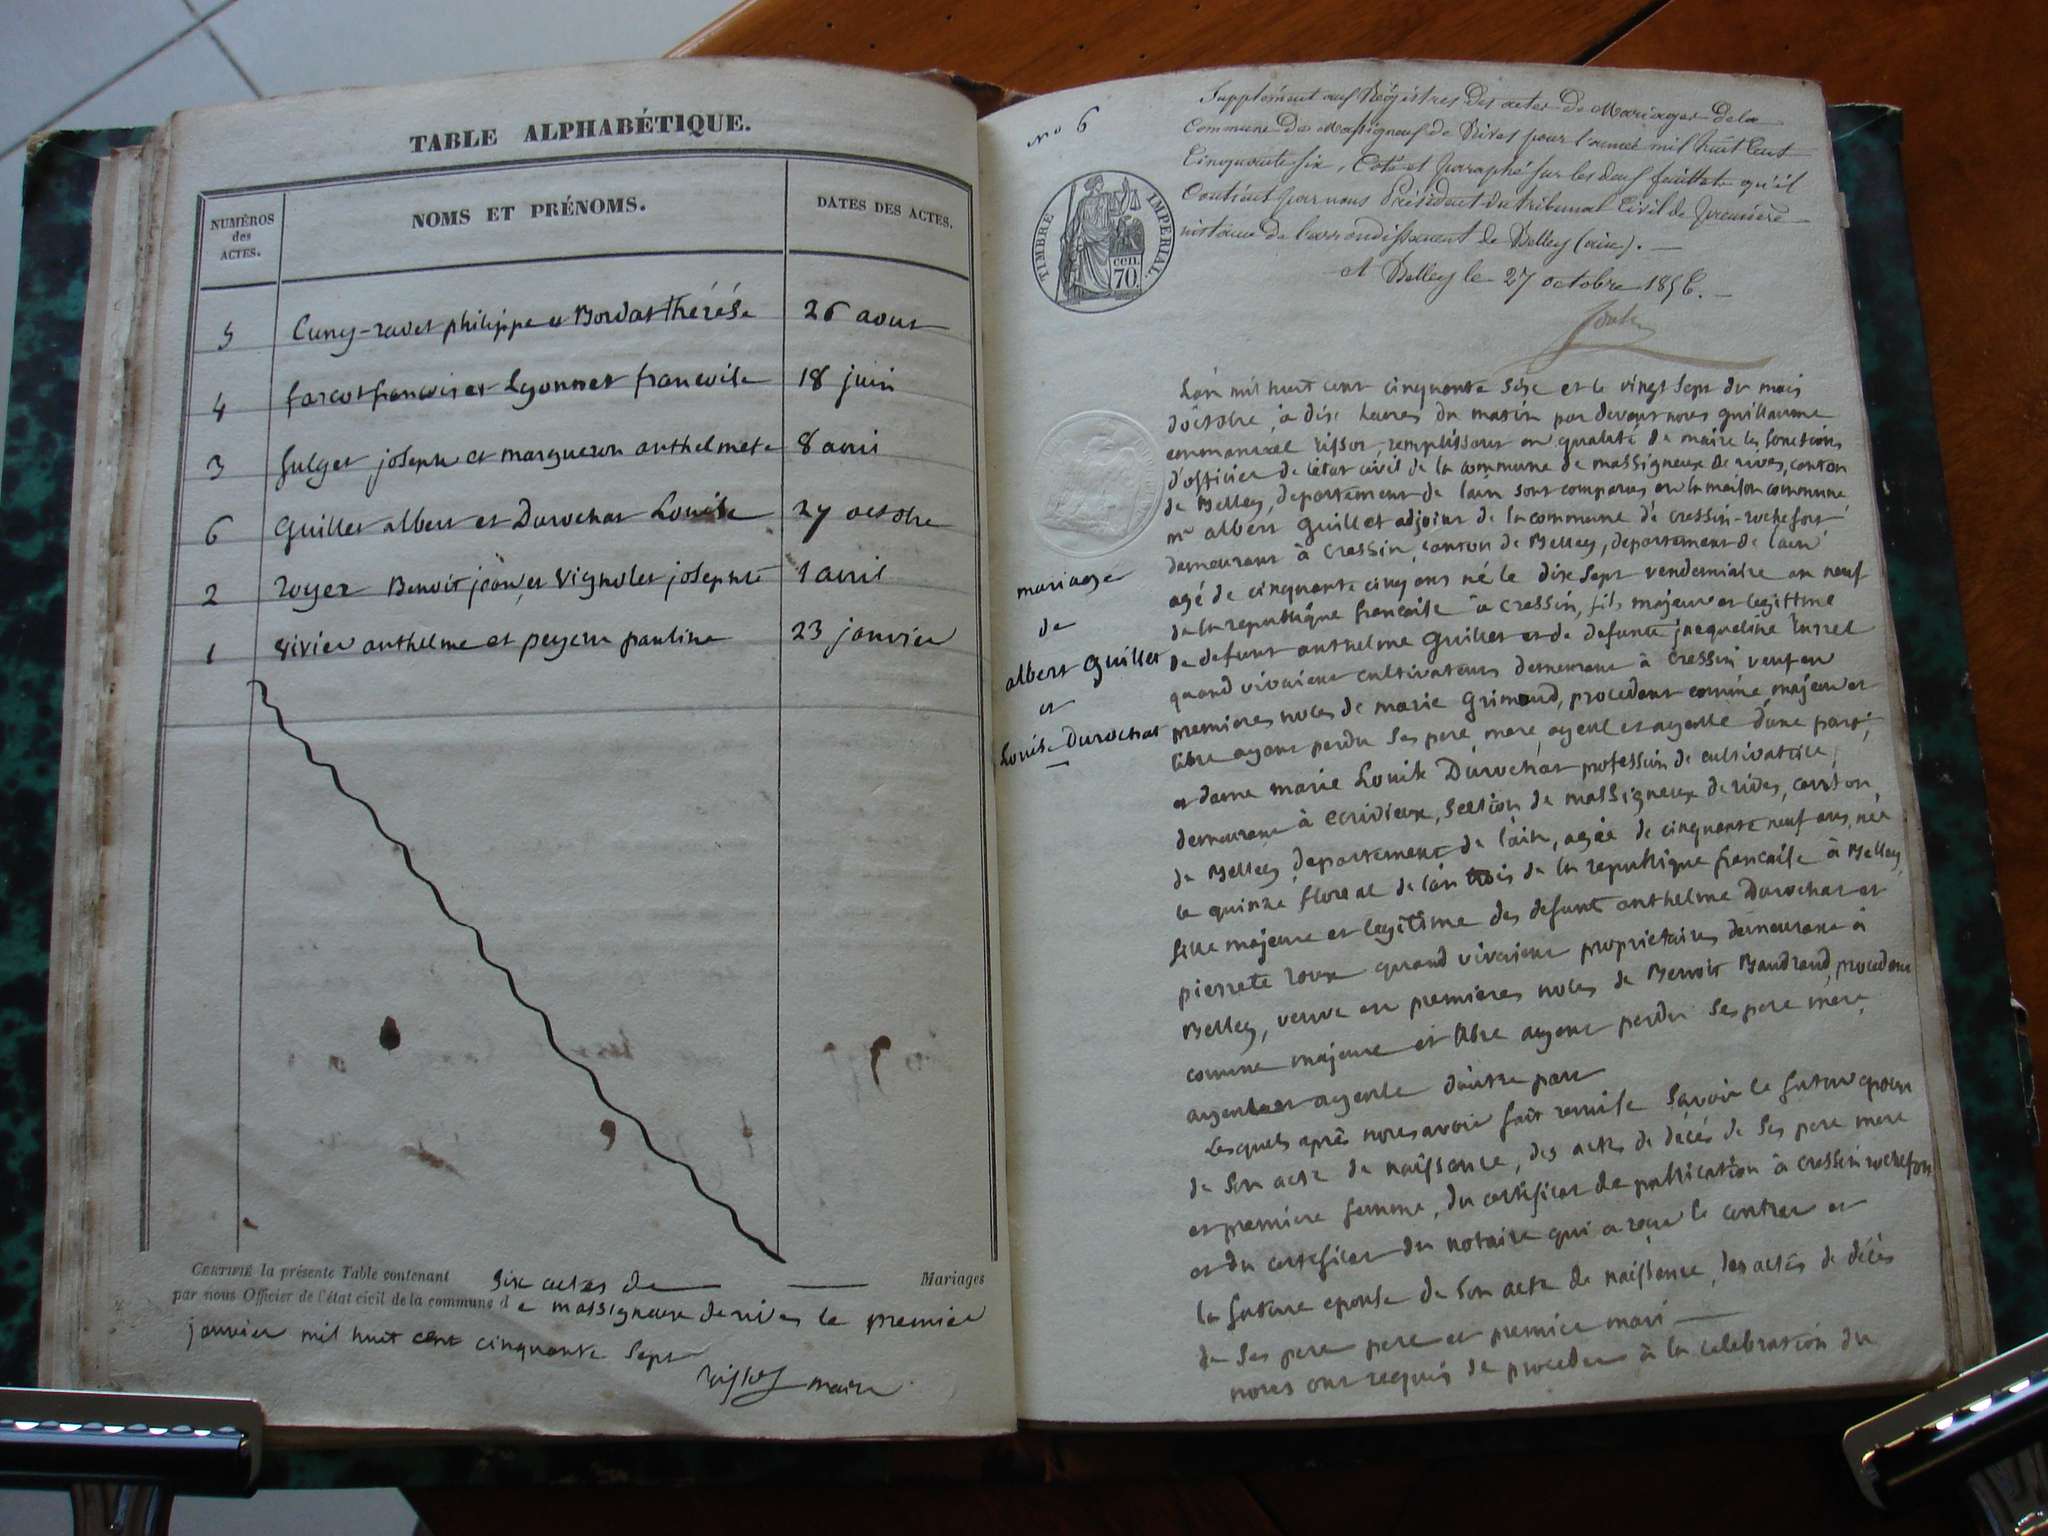 TABLE ALPHABÉTIQUE.
NUMÉROS des ACTES.
NOMS ET PRÉNOMS.
DATES DES ACTES.
5 Cuny-ravet philippe et Bordat thérése 26 aout
4 farcot francois et Lyonnet francoise 18 juin
3 fulget joseph et margueron anthelmete 8 avril
6 Guillet albert et Durochat Louise 27 octobre
2 royer Benoit jean et Vignolet josephte 1 avril
1 vivier anthelme et peyern pauline 23 janvier
CERTIFIÉ la présente Table contenant six actes de Mariages
par nous Officier de l'état civil de la commune de massigneux de rives le premier
janvier mil huit cent cinquante sept
maire
N° 6
Supplément aux Régistres des actes de Mariages de la
Commune de Massigneux de Rives pour l'année mil huit cent
Cinquante six, Coté et paraphé sur les deux feuillets qu'il
Contient par nous Président du tribunal Civil de première
instance de l'arrondissement de Belley (ain).
A Belley le 27 octobre 1856.
TIMBRE IMPERIAL.
70 cen.
mariage
de
albert Guillet
et
Louise Durochat
L'an mil huit cent cinquante six et le vingt sept du mois
d'octobre, à dix heures du matin par devant nous guillaume
emmanuel rissor, remplissant en qualité de maire les fonctions
d'officier de l'état civil de la commune de massigneux de rives, canton
de Belley, departement de l'ain sont comparus en la maison commune
mr albert Guillet adjoint de la commune de cressin-rochefort
demeurant à cressin, canton de Belley, departement de l'ain
agé de cinquante cinq ans né le dix sept vendemiaire an neuf
de la republique francaise à cressin, fils majeur et legittime
de defunt anthelme Guillet et de defunte jacqueline turrel
quand vivaient cultivateurs demeurant à cressin veuf en
premieres noces de marie Grimoud, procedant comme majeur et
libre ayant perdu ses pere, mere, ayeul et ayeule d'une part;
et dame marie Louise Durochat profession de cultivatrice,
demeurant à ecrivieux, section de massigneux de rives, canton,
de Belley, departement de l'ain, agée de cinquante neuf ans, née
le quinze floreal de l'an trois de la republique francaise à Belley,
fille majeure et legitime des defunt anthelme Durochat et
pierrete roux quand vivaient proprietaires demeurant à
Belley, veuve en premieres noces de Benoit Baudrand, procedant
comme majeure et libre ayant perdu ses pere mere,
ayeul et ayeule d'autre part
Lesquels après nous avoir fait remise savoir le futur epoux
de son acte de naissence, des actes de décés de ses pere mere
et premiere femme, du certificat de publication à cressin rochefort
et du certificat du notaire qui a reçu le contrat et
la future epouse de son acte de naissence, des actes de décès
de ses pere pere et premier mari
nous ont requis de proceder à la celebration du